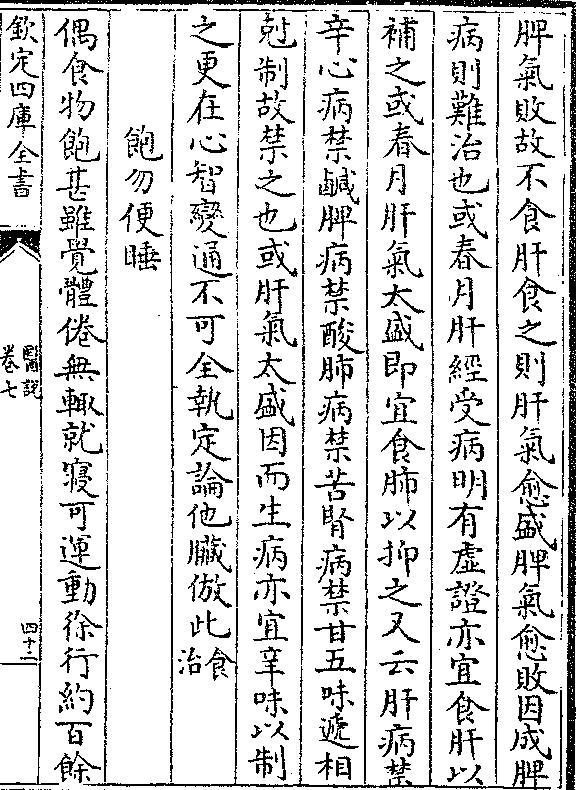 脾氣敗故不食肝食之則肝氣愈盛脾氣愈敗因成脾
病則難治也或春月肝經受病明有虛證亦宜食肝以
補之或春月肝氣太盛即宜食肺以抑之又云肝病禁
辛心病禁鹹脾病禁酸肺病禁苦腎病禁甘五味遞相
尅制故禁之也或肝氣太盛因而生病亦宜辛味以制
之更在心智變通不可全執定論他臟倣此食治
飽勿便睡
偶食物飽甚雖覺體倦無輙就寢可運動徐行約百餘
欽定四庫全書
醫說
卷七
四十二